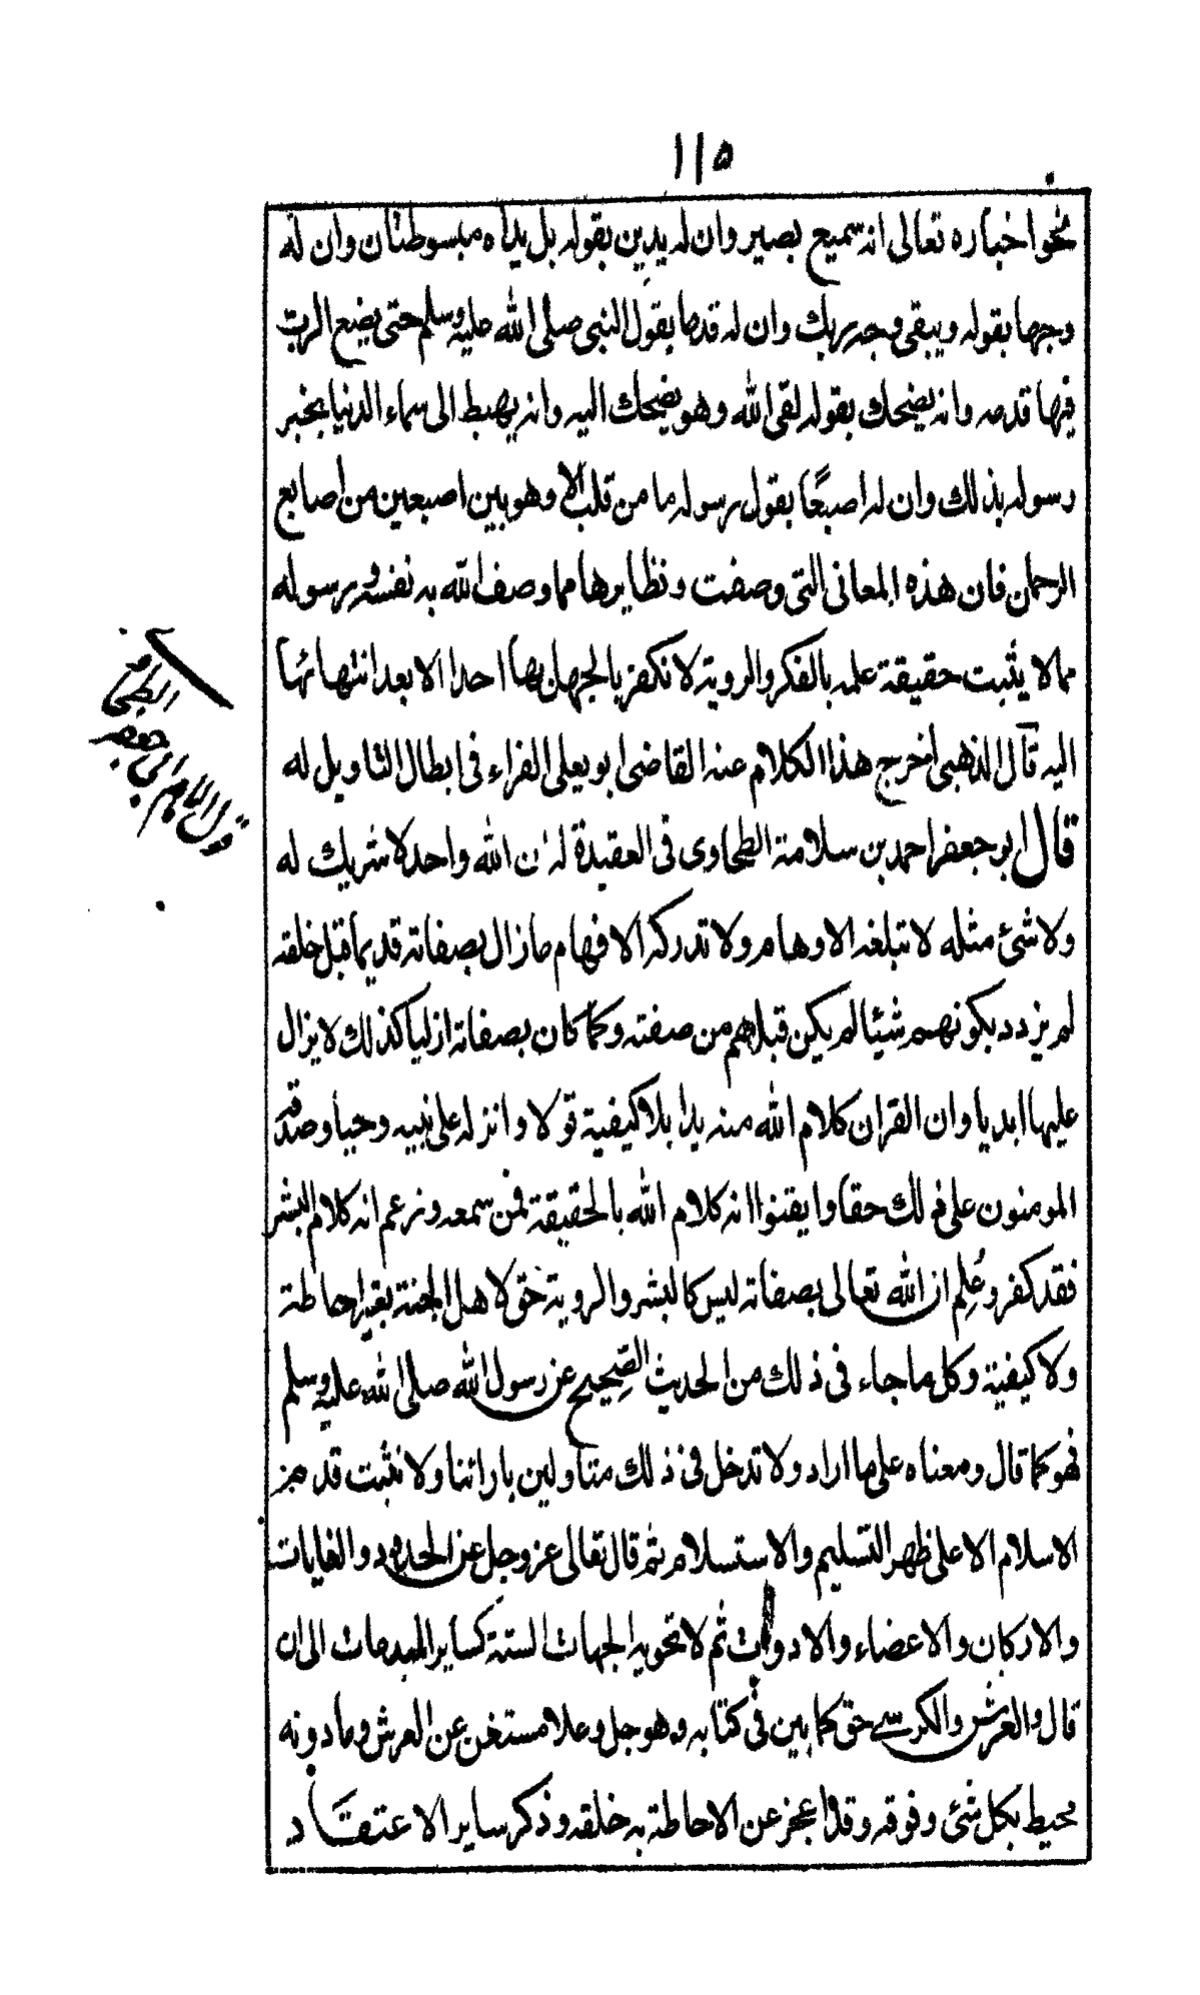 ١١٥
نحو اخباره تعالى انه سميع بصير وان له يدين بقوله بل يداه مبسوطتان وان له
وجها بقوله ويبقى وجه ربك وان له قدما بقول النبى صلى الله عليه وسلم حتى يضع الرب
فيها قدمه وانه يضحك بقوله لقى الله وهو يضحك اليه وانه يهبط الى سماء الدنيا بخبر
رسوله بذلك وان له اصبعًا بقول رسوله ما من قلب الا وهو بين اصبعين من اصابع
الرحمان فان هذه المعانى التى وصفت ونظايرها مما وصف الله به نفسه ورسوله
مما لا يثبت حقيقة علمه بالفكر والروية لا نكفر بالجهل بها احدا الا بعد انتهائها
اليه قال الذهبى اخرج هذا الكلام عنه القاضى ابو يعلى الفراء فى ابطال التاويل له
قال ابو جعفر احمد بن سلامة الطحاوى فى العقيدة له ان الله واحد لا شريك له
ولا شئ مثله لا تبلغه الاوهام ولا تدركه الافهام مازال بصفاته قديما قبل خلقه
لم يزدد بكونهم شيئا لم يكن قبلهم من صفته وكما كان بصفاته ازليا كذلك لا يزال
عليها ابديا وان القران كلام الله منه بدا بلا كيفية قولا وانزله على نبيه وحيا وصدقه
المومنون على ذلك حقا وايقنوا انه كلام الله بالحقيقة فمن سمعه وزعم انه كلام البشر
فقد كفر وعُلِم ان الله تعالى بصفاته ليس كالبشر والروية حق لاهل الجنة بغير احاطة
ولا كيفية وكل ما جاء فى ذلك من الحديث الصحيح عن رسول الله صلى الله عليه وسلم
فهو كما قال ومعناه على ما اراد ولا ندخل فى ذلك متاولين بارائنا ولا نثبت قدم
الاسلام الا على ظهر التسليم والاستسلام ثم قال تعالى عز وجل عن الحدود والغايات
والاركان والاعضاء والادوات ثم لا تحويه الجهات الستة كساير المبدعات الى ان
قال والعرش والكرسے حق كما بين فى كتابه وهو جل وعلا مستغن عن العرش وما دونه
محيط بكل شئ وفوقه وقد اعجز عن الاحاطة به خلقه وذكر ساير الاعتقاد
قول الامام ابى جعفر
الطحاوى